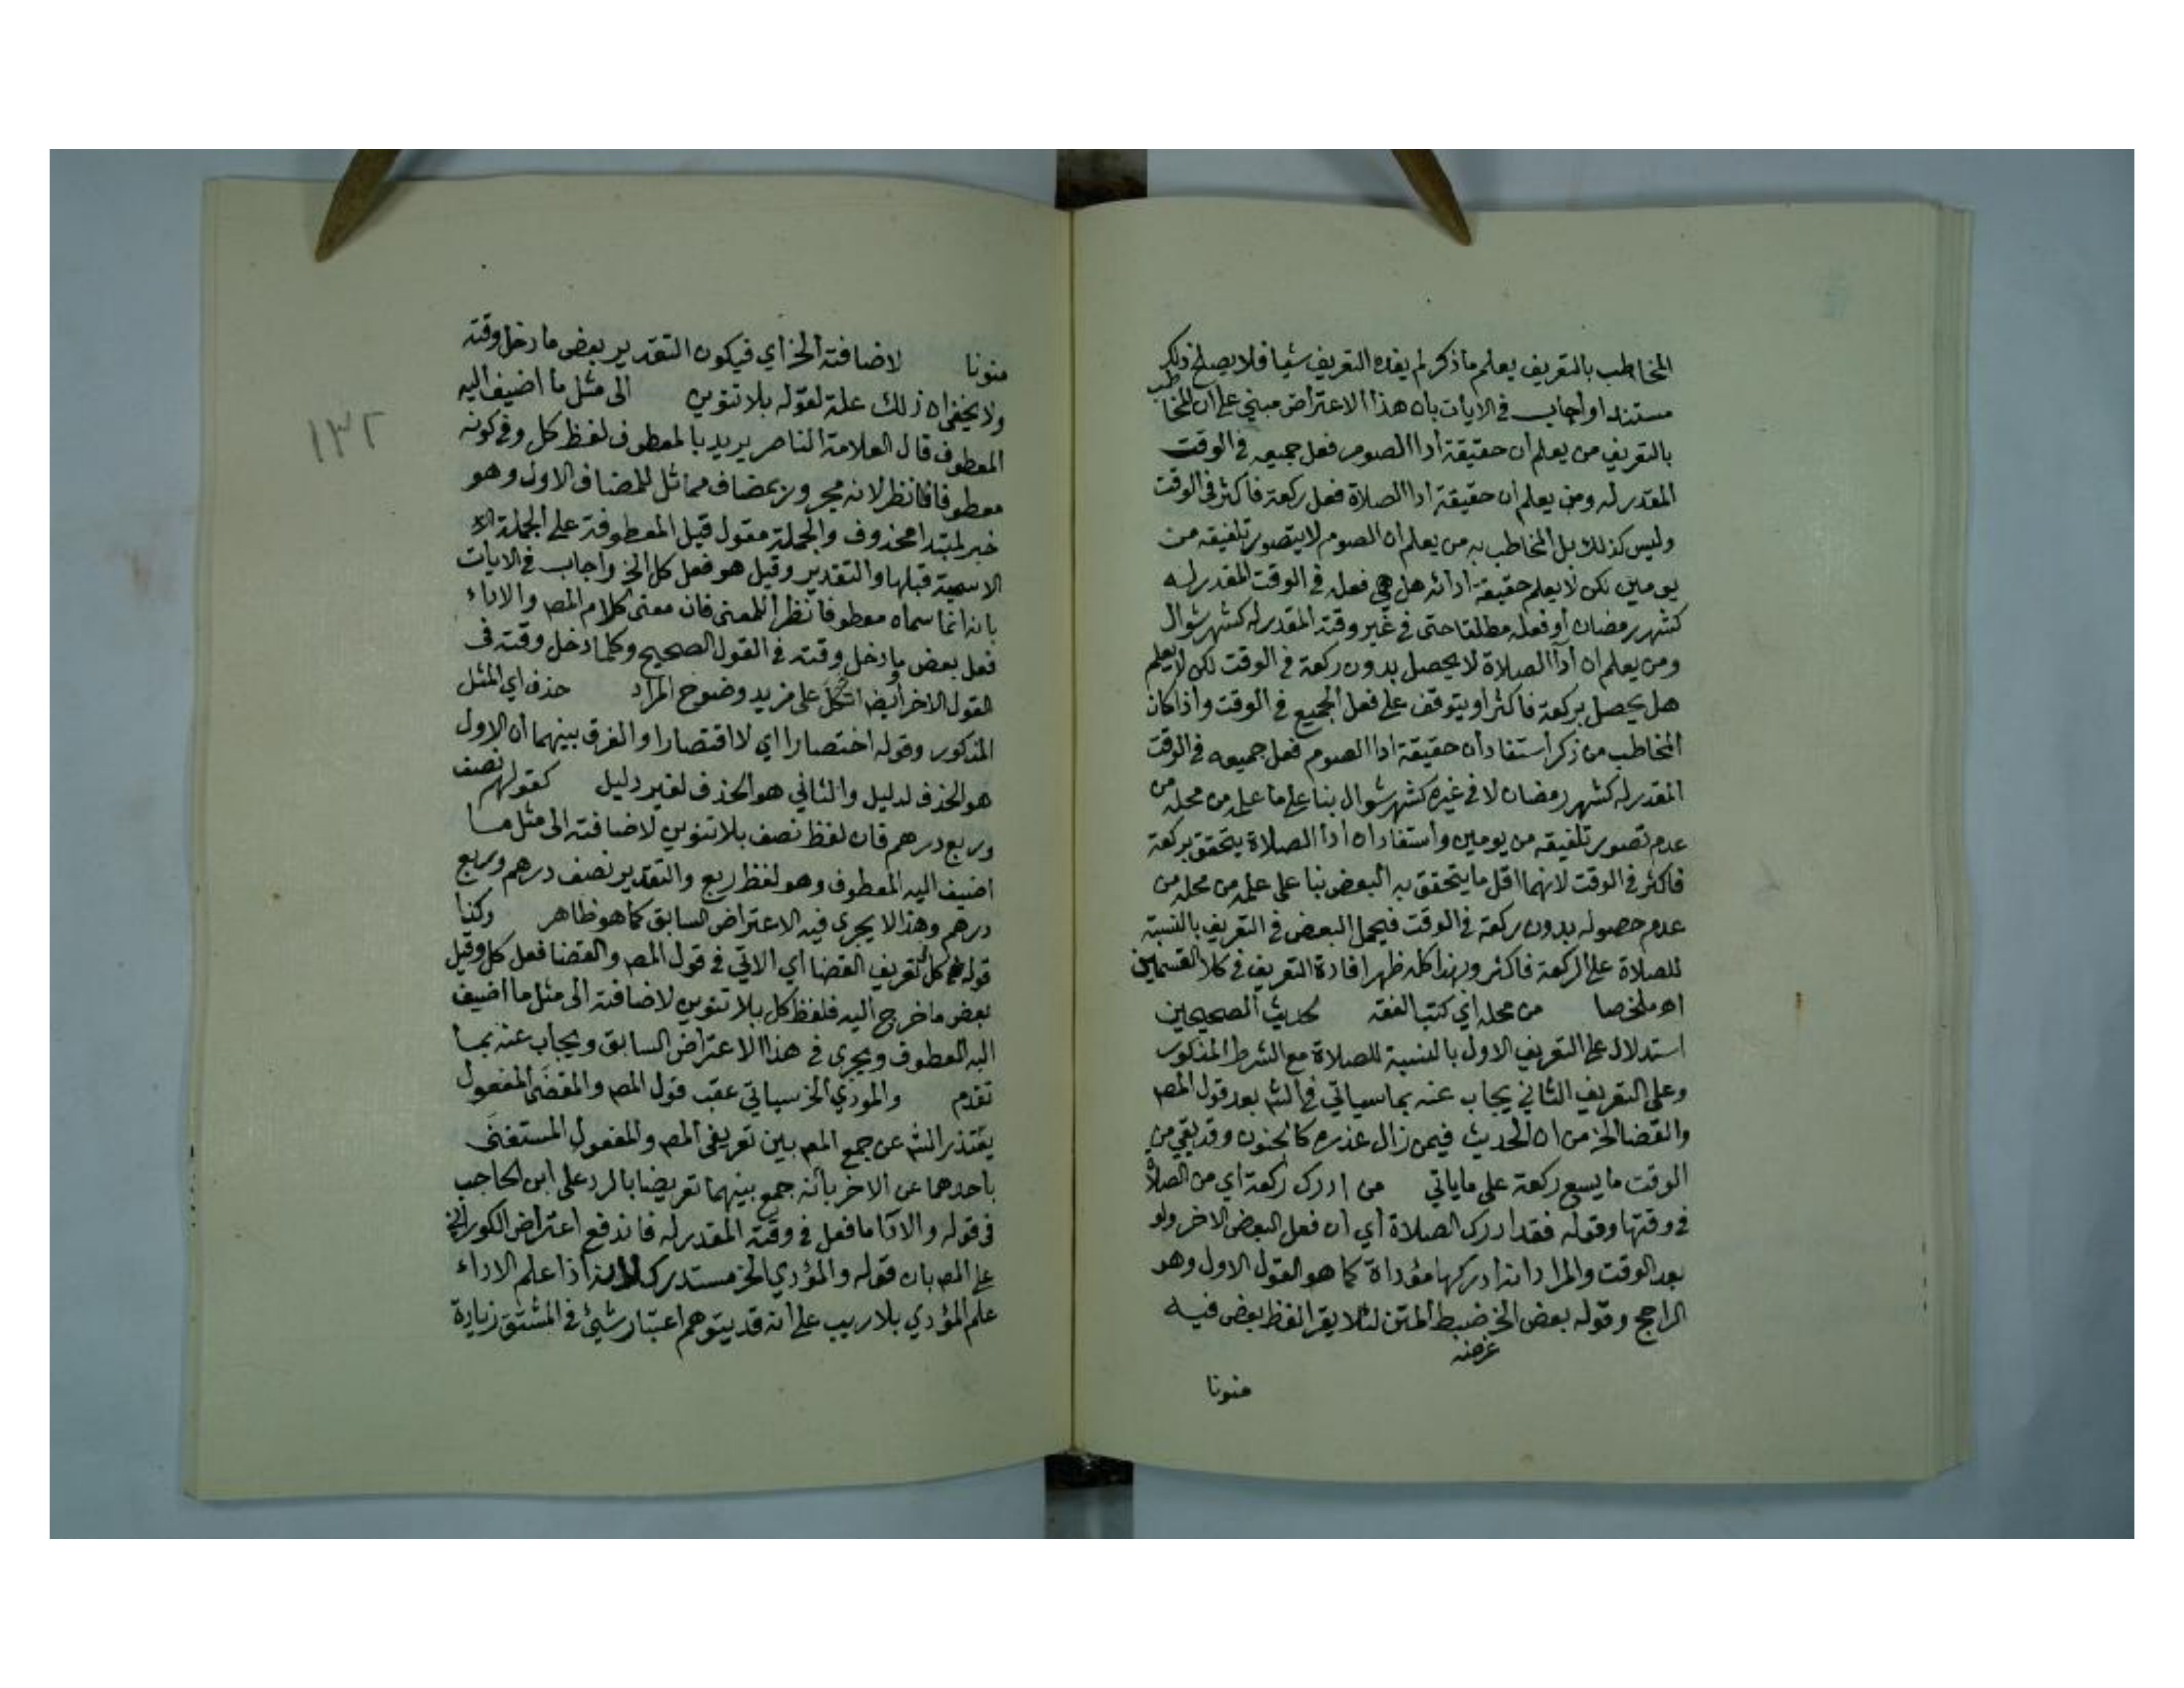 المخاطب بالتعريف يعلم ماذكر لم يفده التعريف شيا فلا يصلح ذلك
مستندا واجاب في الايات بان هذا الاعتراض مبني على ان المخاطب
بالتعريف من يعلم ان حقيقة ادا الصوم فعل جميعه في الوقت
المقدر له ومن يعلم ان حقيقة ادا الصلاة فعل ركعة فاكثر في الوقت
وليس كذلك بل المخاطب به من يعلم ان الصوم لا يتصور تلفيقه من
يومين لكن لا يعلم حقيقة ادائه هل هي فعله في الوقت المقدر له
كشهر رمضان او فعله مطلقا حتى في غير وقته المقدر له كشهر شوال
ومن يعلم ان أدآ الصلاة لا يحصل بدون ركعة في الوقت لكن لا يعلم
هل يحصل بركعة فاكثر او يتوقف على فعل الجميع في الوقت واذا كان
المخاطب من ذكر استفاد ان حقيقة ادا الصوم فعل جميعه في الوقت
المقدر له كشهر رمضان لا في غيره كشهر شوال بنا على ما علم من محله من
عدم تصوير تلفيقه من يومين واستفاد ان ادا الصلاة يتحقق بركعة
فاكثر في الوقت لانهما اقل ما يتحقق به البعض بنا على علمه من محله من
عدم حصوله بدون ركعة في الوقت فيحمل البعض في التعريف بالنسبة
للصلاة على الركعة فاكثر وبهذا كله ظهر افادة التعريف في كلا القسمين
اه ملخصا من محله اي كتب الفقه لحديث الصحيحين
استدلال على التعريف الاول بالنسبة للصلاة مع الشرط المذكور
وعلى التعريف الثاني يجاب عنه بما سياتي في الشم بعد قول المص
والقضا الخ من ان الحديث فيمن زال عذره كالجنون وقد بقي من
الوقت ما يسع ركعة على ماياتي من ادرك ركعة اي من الصلاة
في وقتها وقوله فقد ادرك الصلاة أي ان فعل البعض الاخر ولو
بعد الوقت والمراد انه ادركها مؤداة كما هو القول الاول وهو
الراجح وقوله بعض الخ ضبط المتن لئلا يقرا لفظ بعض فيه
غرضه
منونا
منونا لاضافته الخ أي فيكون التقدير بعض ما دخل وقته
ولا يخفى ان ذلك علة لقوله بلا تنوين الى مثل ما اضيف اليه
المعطوف قال العلامة الناصر يريد بالمعطوف لفظ كل وفي كونه
معطوفا نظر لانه مجرور بمضاف مماثل للمضاف الاول وهو
خبر لمبتدا محذوف والجملة مقول قيل المعطوفة على الجملة
الاسمية قبلها والتقدير وقيل هو فعل كل الخ واجاب في الايات
بانه انما سماه معطوفا نظرا للمعنى فان معنى كلام المص والاداء
فعل بعض ما دخل وقته في القول الصحيح وكل ما دخل وقته في
القول الاخر ايضا اتكل على مزيد وضوح المراد حذف اي المثل
المذكور وقوله اختصارا اي لا اقتصارا والفرق بينهما أن الاول
هو الحذف لدليل والثاني هو الحذف لغير دليل كقولهم نصف
وربع درهم فان لفظ نصف بلا تنوين لاضافته الى مثل ما
اضيف اليه المعطوف وهو لفظ ربع والتقدير نصف درهم وربع
درهم وهذا لا يجرى فيه الاعتراض السابق كما هو ظاهر وكذا
قوله كل تعريف القضا اي الاتي في قول المص والقضا فعل كل وقيل
بعض ما خرج اليه فلفظ كل بلا تنوين لاضافته الى مثل ما اضيف
اليه المعطوف ويجرى في هذا الاعتراض السابق ويجاب عنه بما
تقدم والمودي الخ سياتي عقب قول المص والمقضي المفعول
يعتذر الشم عن جمع المص بين تعريفي المص والمفعول المستغنى
باحدهما عن الاخر بأنه جمع بينهما تعريضا بالرد على ابن الحاجب
في قوله والادآ ما فعل في وقته المقدر له فاندفع اعتراض الكوراني
على المص بان قوله والمؤدي الخ مستدرك لانه اذا علم الاداء
علم المؤدي بلا ريب على انه قد يتوهم اعتبار شيئ في المشتق زيادة
١٣٢